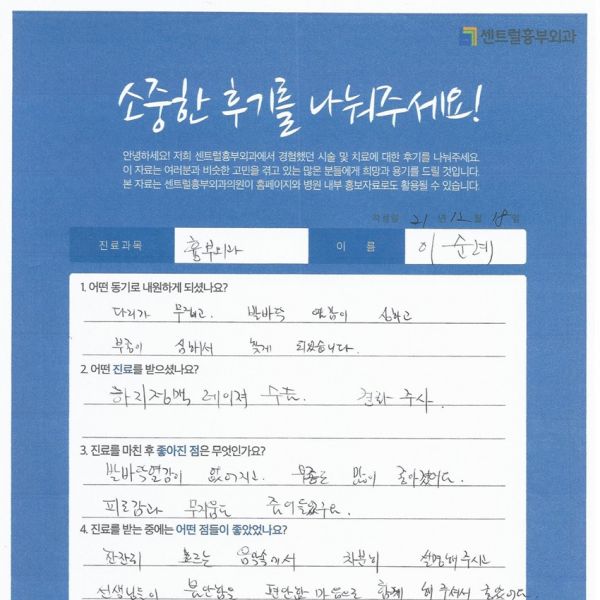 센트럴흉부외과
소중한 후기를 나눠주세요!
안녕하세요! 저희 센트럴흉부외과에서 경험했던 시술 및 치료에 대한 후기를 나눠주세요.
이 자료는 여러분과 비슷한 고민을 겪고 있는 많은 분들에게 희망과 용기를 드릴 것입니다.
본 자료는 센트럴흉부외과의원이 홈페이지와 병원 내부 홍보자료로도 활용될 수 있습니다.
작성일 21 년 12 월 18 일
진료과목 흉부외과 이 름 이순례
1. 어떤 동기로 내원하게 되셨나요?
다리가 무겁고. 발바닥 열감이 심하고
부종이 심해서 찾게 되었습니다.
2. 어떤 진료를 받으셨나요?
하지정맥 레이져 수술. 경화 주사.
3. 진료를 마친 후 좋아진 점은 무엇인가요?
발바닥열감이 없어지고. 부종도 많이 좋아졌어요.
피로감과 무거움도 줄어들었구요.
4. 진료를 받는 중에는 어떤 점들이 좋았었나요?
잔잔히 흐르는 음악속에서 차분히 설명해 주시고
선생님들이 불안함을 편안한 마음으로 함께 해 주셔서 좋았어요.